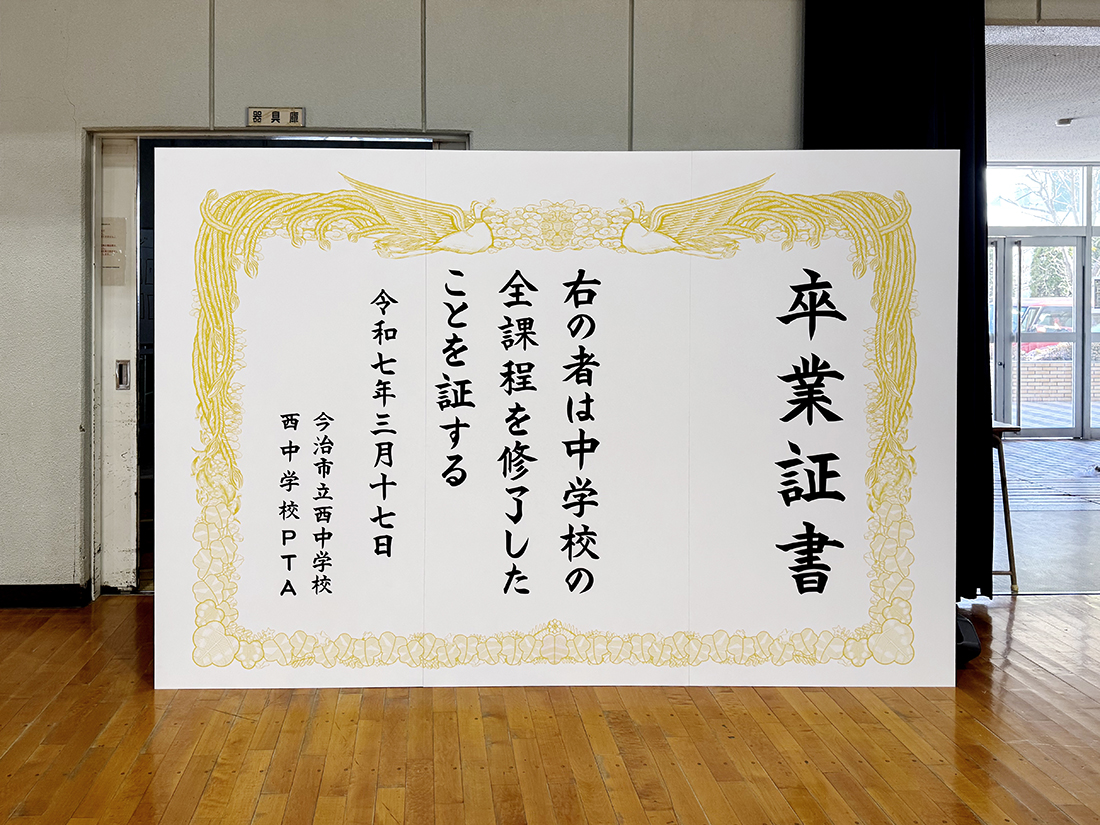 器具庫
卒業証書
右の者は中学校の
全課程を修了した
ことを証する
令和七年三月十七日
今治市立西中学校
西中学校PTA